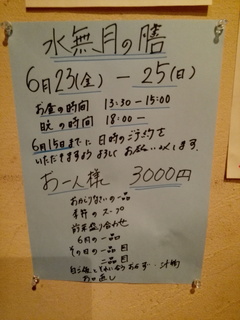 水無月の膳
6月23(金) — 25(日)
お昼の時間 13:30 - 15:00
晩の時間 18:00 —
6月15日までに 日時のご予約を
いただきますよう よろしく お願いします.
お一人様 3000円
おかわりないの一品
季節のスープ
前菜盛り合わせ
6月の一品
その日の一品目
二品目
汁物